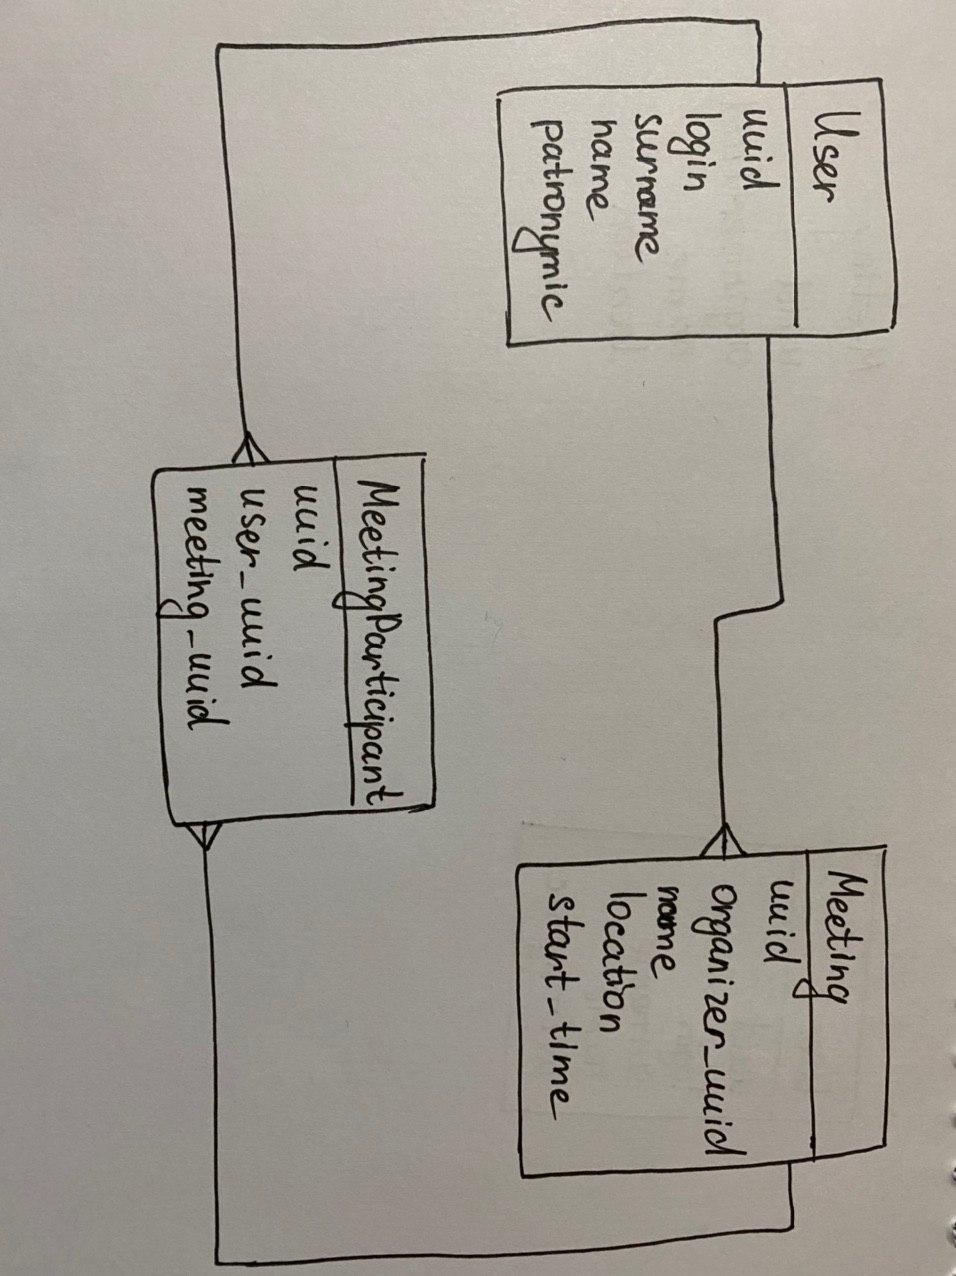 User
uuid
login
surname
name
patronymic
Meeting
uuid
organizer_uuid
name
location
start_time
MeetingParticipant
uuid
user_uuid
meeting_uuid